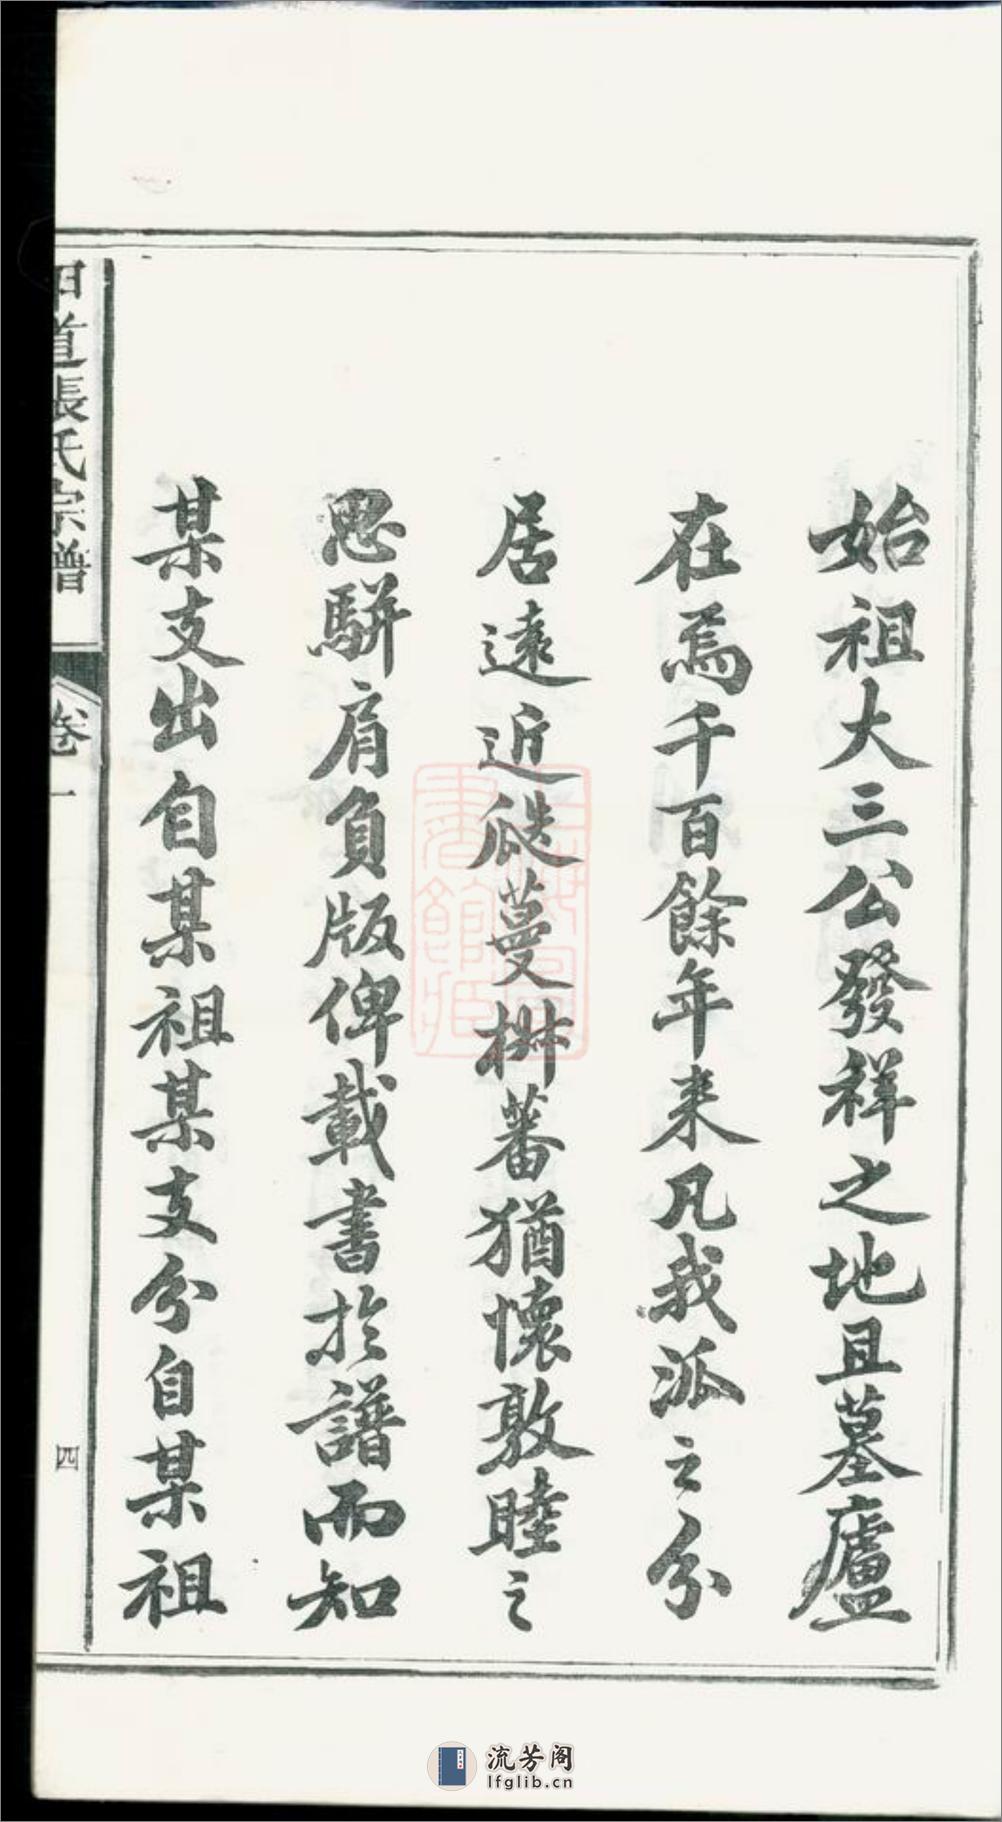 始祖大三公發祥之地且墓廬
在焉千百餘年来凡我派之分
居遠近瓞蔓椒蕃猶懷敦睦之
思駢肩負版俾載書於譜而知
某支出自某祖某支分自某祖
道張氏宗譜
卷一
四
上海圖
書館藏
流芳阁
lfglib.cn